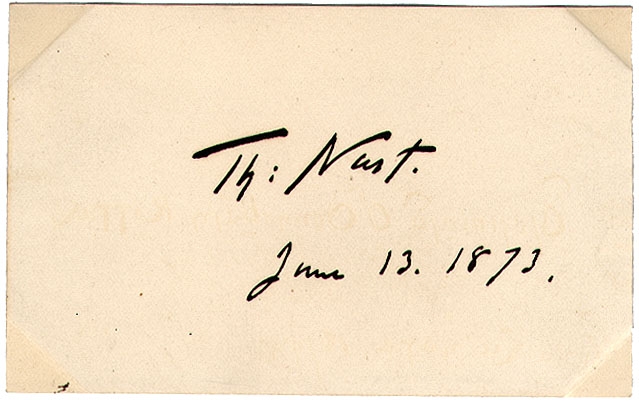 Th: Nast.
June 13. 1873.